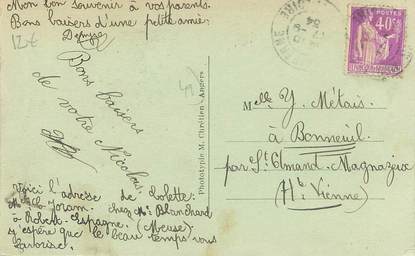 Mon bon souvenir à vos parents.
Bons baisers d'une petite amie
Denyse
12€
Bons baisers
de votre Nicolas
49
Phototypie M. Chrétien - Angers
POSTES
40c
Melle Y. Métais
à Bonneuil
par St Amand-Magnazeix
(Hte Vienne)
Voici l'adresse de Lolette:
Joram. chez Mr Blanchard
à Robert-Espagne. (Meuse)
J'espère que le beau temps vous
favorise.